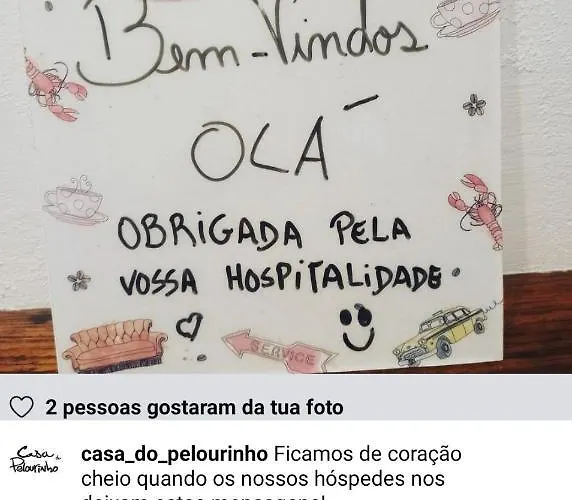 Bem-Vindos
OLÁ
OBRIGADA PELA
VOSSA HOSPITALIDADE.
SERVICE
2 pessoas gostaram da tua foto
Casa do Pelourinho
casa_do_pelourinho Ficamos de coração
cheio quando os nossos hóspedes nos
deixam estas mensagens!